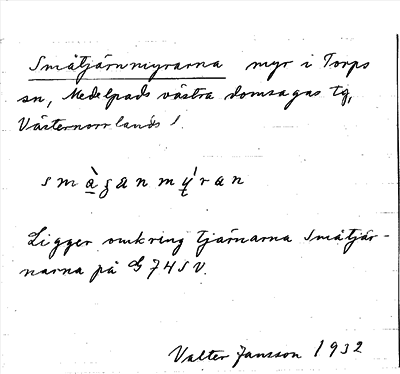 Småtjärnmyrarna myr i Torps
sn, Medelpads västra domsagas tg,
Västernorrlands l.
småganmyran
Ligger omkring tjärnarna Småtjär-
narna på G 74 SV.
Valter Jansson 1932